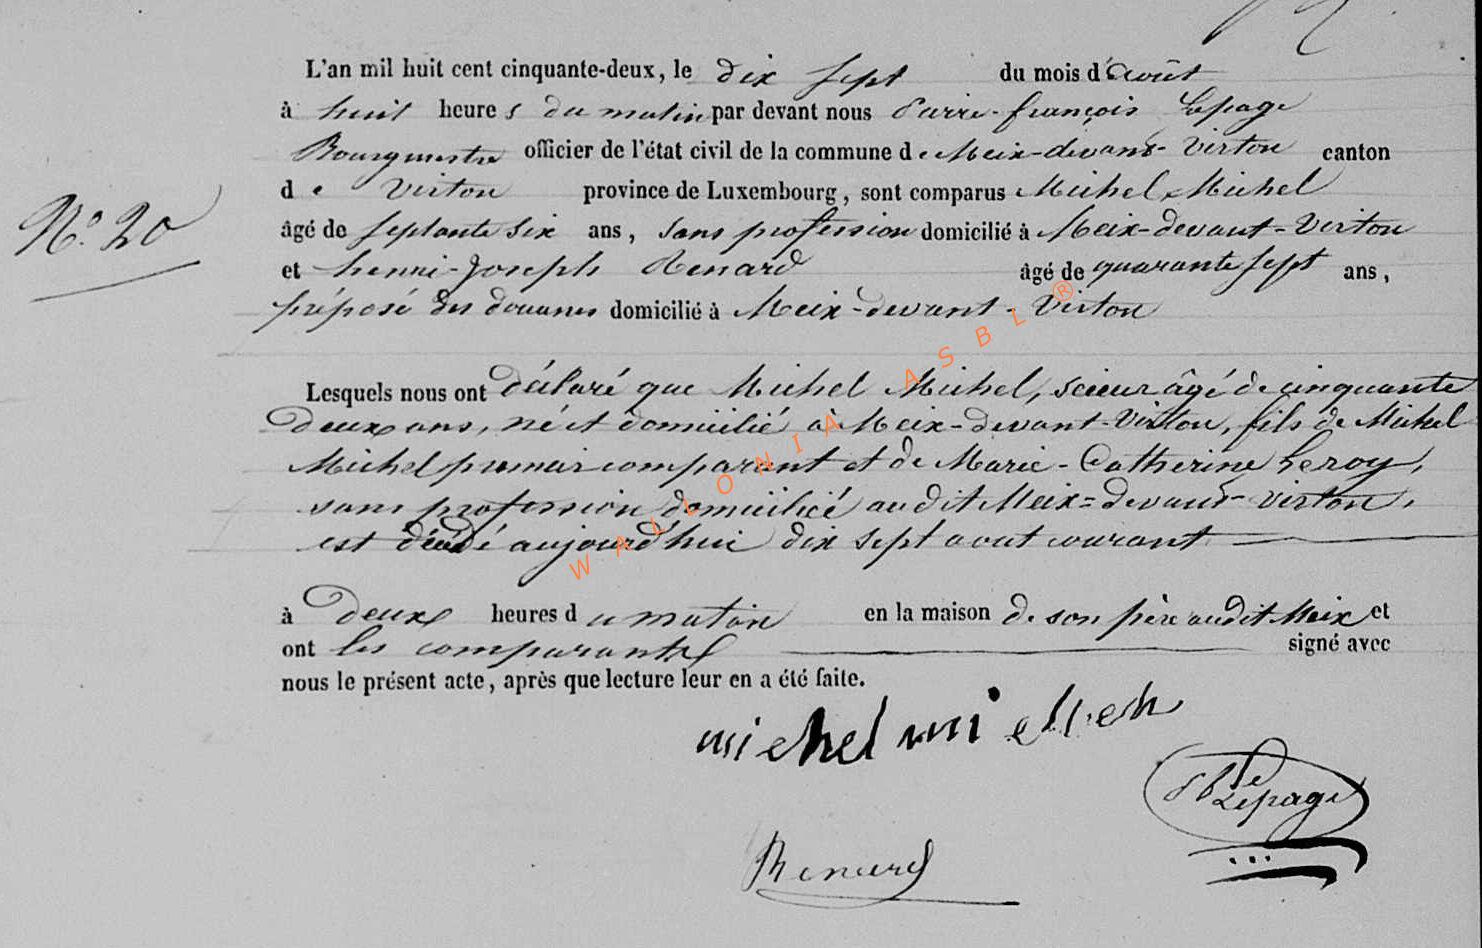 L'an mil huit cent cinquante-deux, le dix sept du mois d'août
à huit heures du matin par devant nous Pierre-françois Lepage
Bourgmestre officier de l'état civil de la commune de Meix-devant-Virton canton
de Virton province de Luxembourg, sont comparus Michel Michel
N° 20
âgé de septante six ans, sans profession domicilié à Meix-devant-Virton
et henri-Joseph Renard âgé de quarante sept ans,
préposé des douanes domicilié à Meix-devant-Virton
Lesquels nous ont déclaré que Michel Michel, scieur âgé de cinquante
deux ans, né et domicilié à Meix-devant-Virton, fils de Michel
Michel premier comparant et de Marie-Catherine Leroy,
sans profession domicilié audit Meix=devant-Virton,
est décédé aujourd'hui dix sept aout courant
à deux heures du matin en la maison de son père audit Meix et
ont les comparants signé avec
nous le présent acte, après que lecture leur en a été faite.
michel mi
Lepage
Renard
WALLONIA ASBL ®